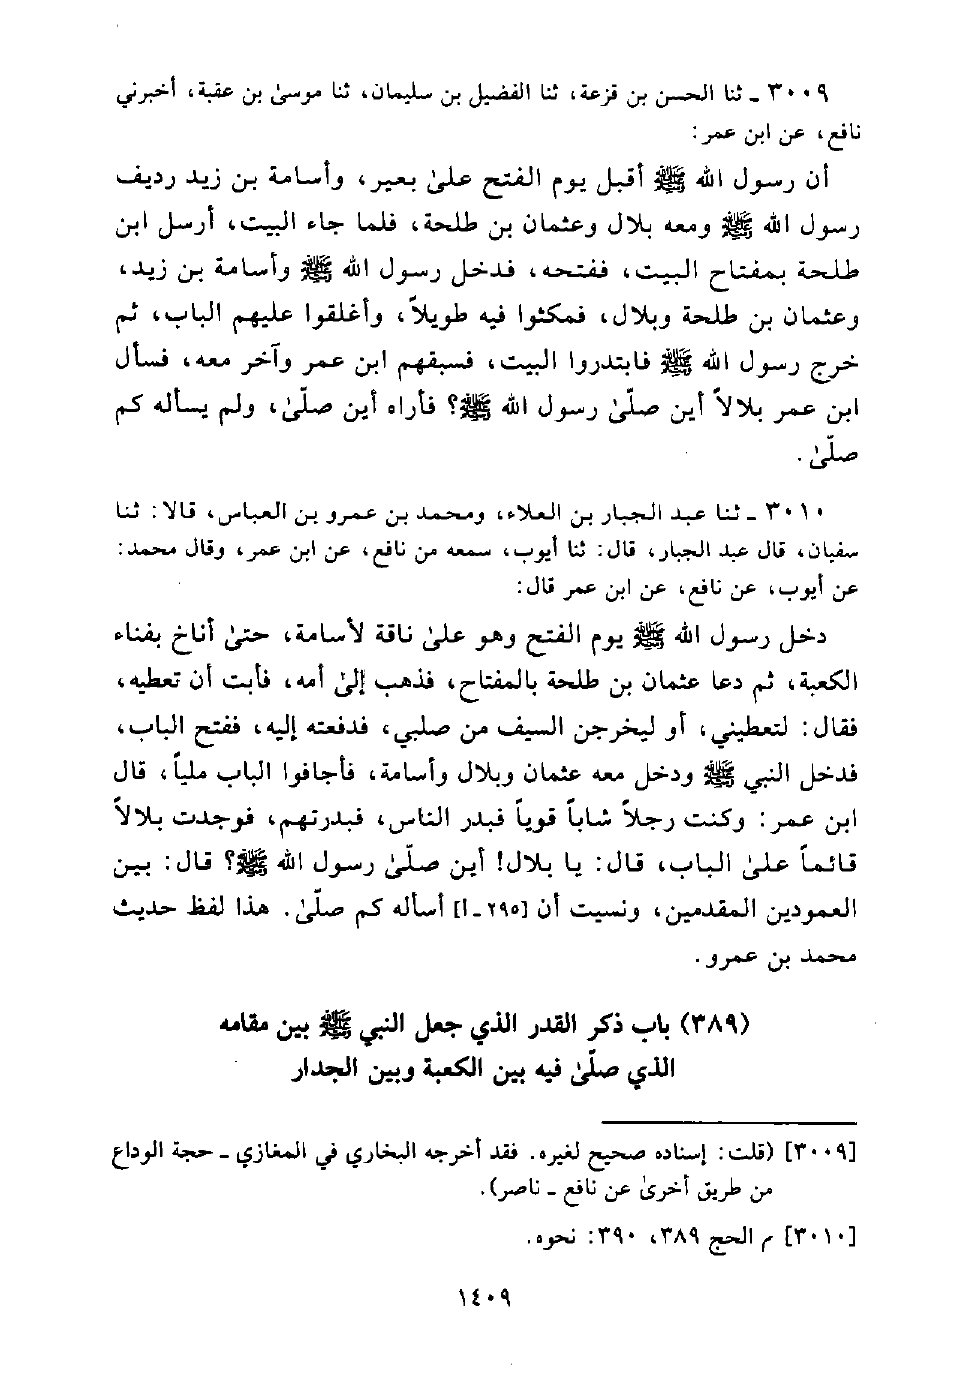 ٣٠٠٩ ـ ثنا الحسن بن قزعة، ثنا الفضيل بن سليمان، ثنا موسىٰ بن عقبة، أخبرني
نافع، عن ابن عمر:
أن رسول الله ﷺ أقبل يوم الفتح علىٰ بعير، وأسامة بن زيد رديف
رسول الله ﷺ ومعه بلال وعثمان بن طلحة، فلما جاء البيت، أرسل ابن
طلحة بمفتاح البيت، ففتحه، فدخل رسول الله ﷺ وأسامة بن زيد،
وعثمان بن طلحة وبلال، فمكثوا فيه طويلاً، وأغلقوا عليهم الباب، ثم
خرج رسول الله ﷺ فابتدروا البيت، فسبقهم ابن عمر وآخر معه، فسأل
ابن عمر بلالاً أين صلّىٰ رسول الله ﷺ؟ فأراه أين صلّىٰ، ولم يسأله كم
صلّىٰ.
٣٠١٠ ـ ثنا عبد الجبار بن العلاء، ومحمد بن عمرو بن العباس، قالا: ثنا
سفيان، قال عبد الجبار، قال: ثنا أيوب، سمعه من نافع، عن ابن عمر، وقال محمد:
عن أيوب، عن نافع، عن ابن عمر قال:
دخل رسول الله ﷺ يوم الفتح وهو علىٰ ناقة لأسامة، حتىٰ أناخ بفناء
الكعبة، ثم دعا عثمان بن طلحة بالمفتاح، فذهب إلىٰ أمه، فأبت أن تعطيه،
فقال: لتعطيني، أو ليخرجن السيف من صلبي، فدفعته إليه، ففتح الباب،
فدخل النبي ﷺ ودخل معه عثمان وبلال وأسامة، فأجافوا الباب ملياً، قال
ابن عمر: وكنت رجلاً شاباً قوياً فبدر الناس، فبدرتهم، فوجدت بلالاً
قائماً علىٰ الباب، قال: يا بلال! أين صلّىٰ رسول الله ﷺ؟ قال: بين
العمودين المقدمين، ونسيت أن [٢٩٥ـ ا] أسأله كم صلّىٰ. هذا لفظ حديث
محمد بن عمرو.
(٣٨٩) باب ذكر القدر الذي جعل النبي ﷺ بين مقامه
الذي صلّىٰ فيه بين الكعبة وبين الجدار
[٣٠٠٩] (قلت: إسناده صحيح لغيره. فقد أخرجه البخاري في المغازي ـ حجة الوداع
من طريق أخرىٰ عن نافع ـ ناصر).
[٣٠١٠] م الحج ٣٨٩، ٣٩٠: نحوه.
١٤٠٩